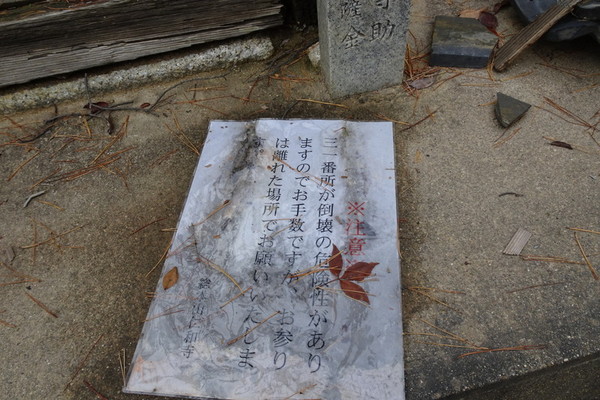 ※注意
三一番所が倒壊の危険性があり
ますのでお手数ですが、お参り
は離れた場所でお願いいたしま
す。